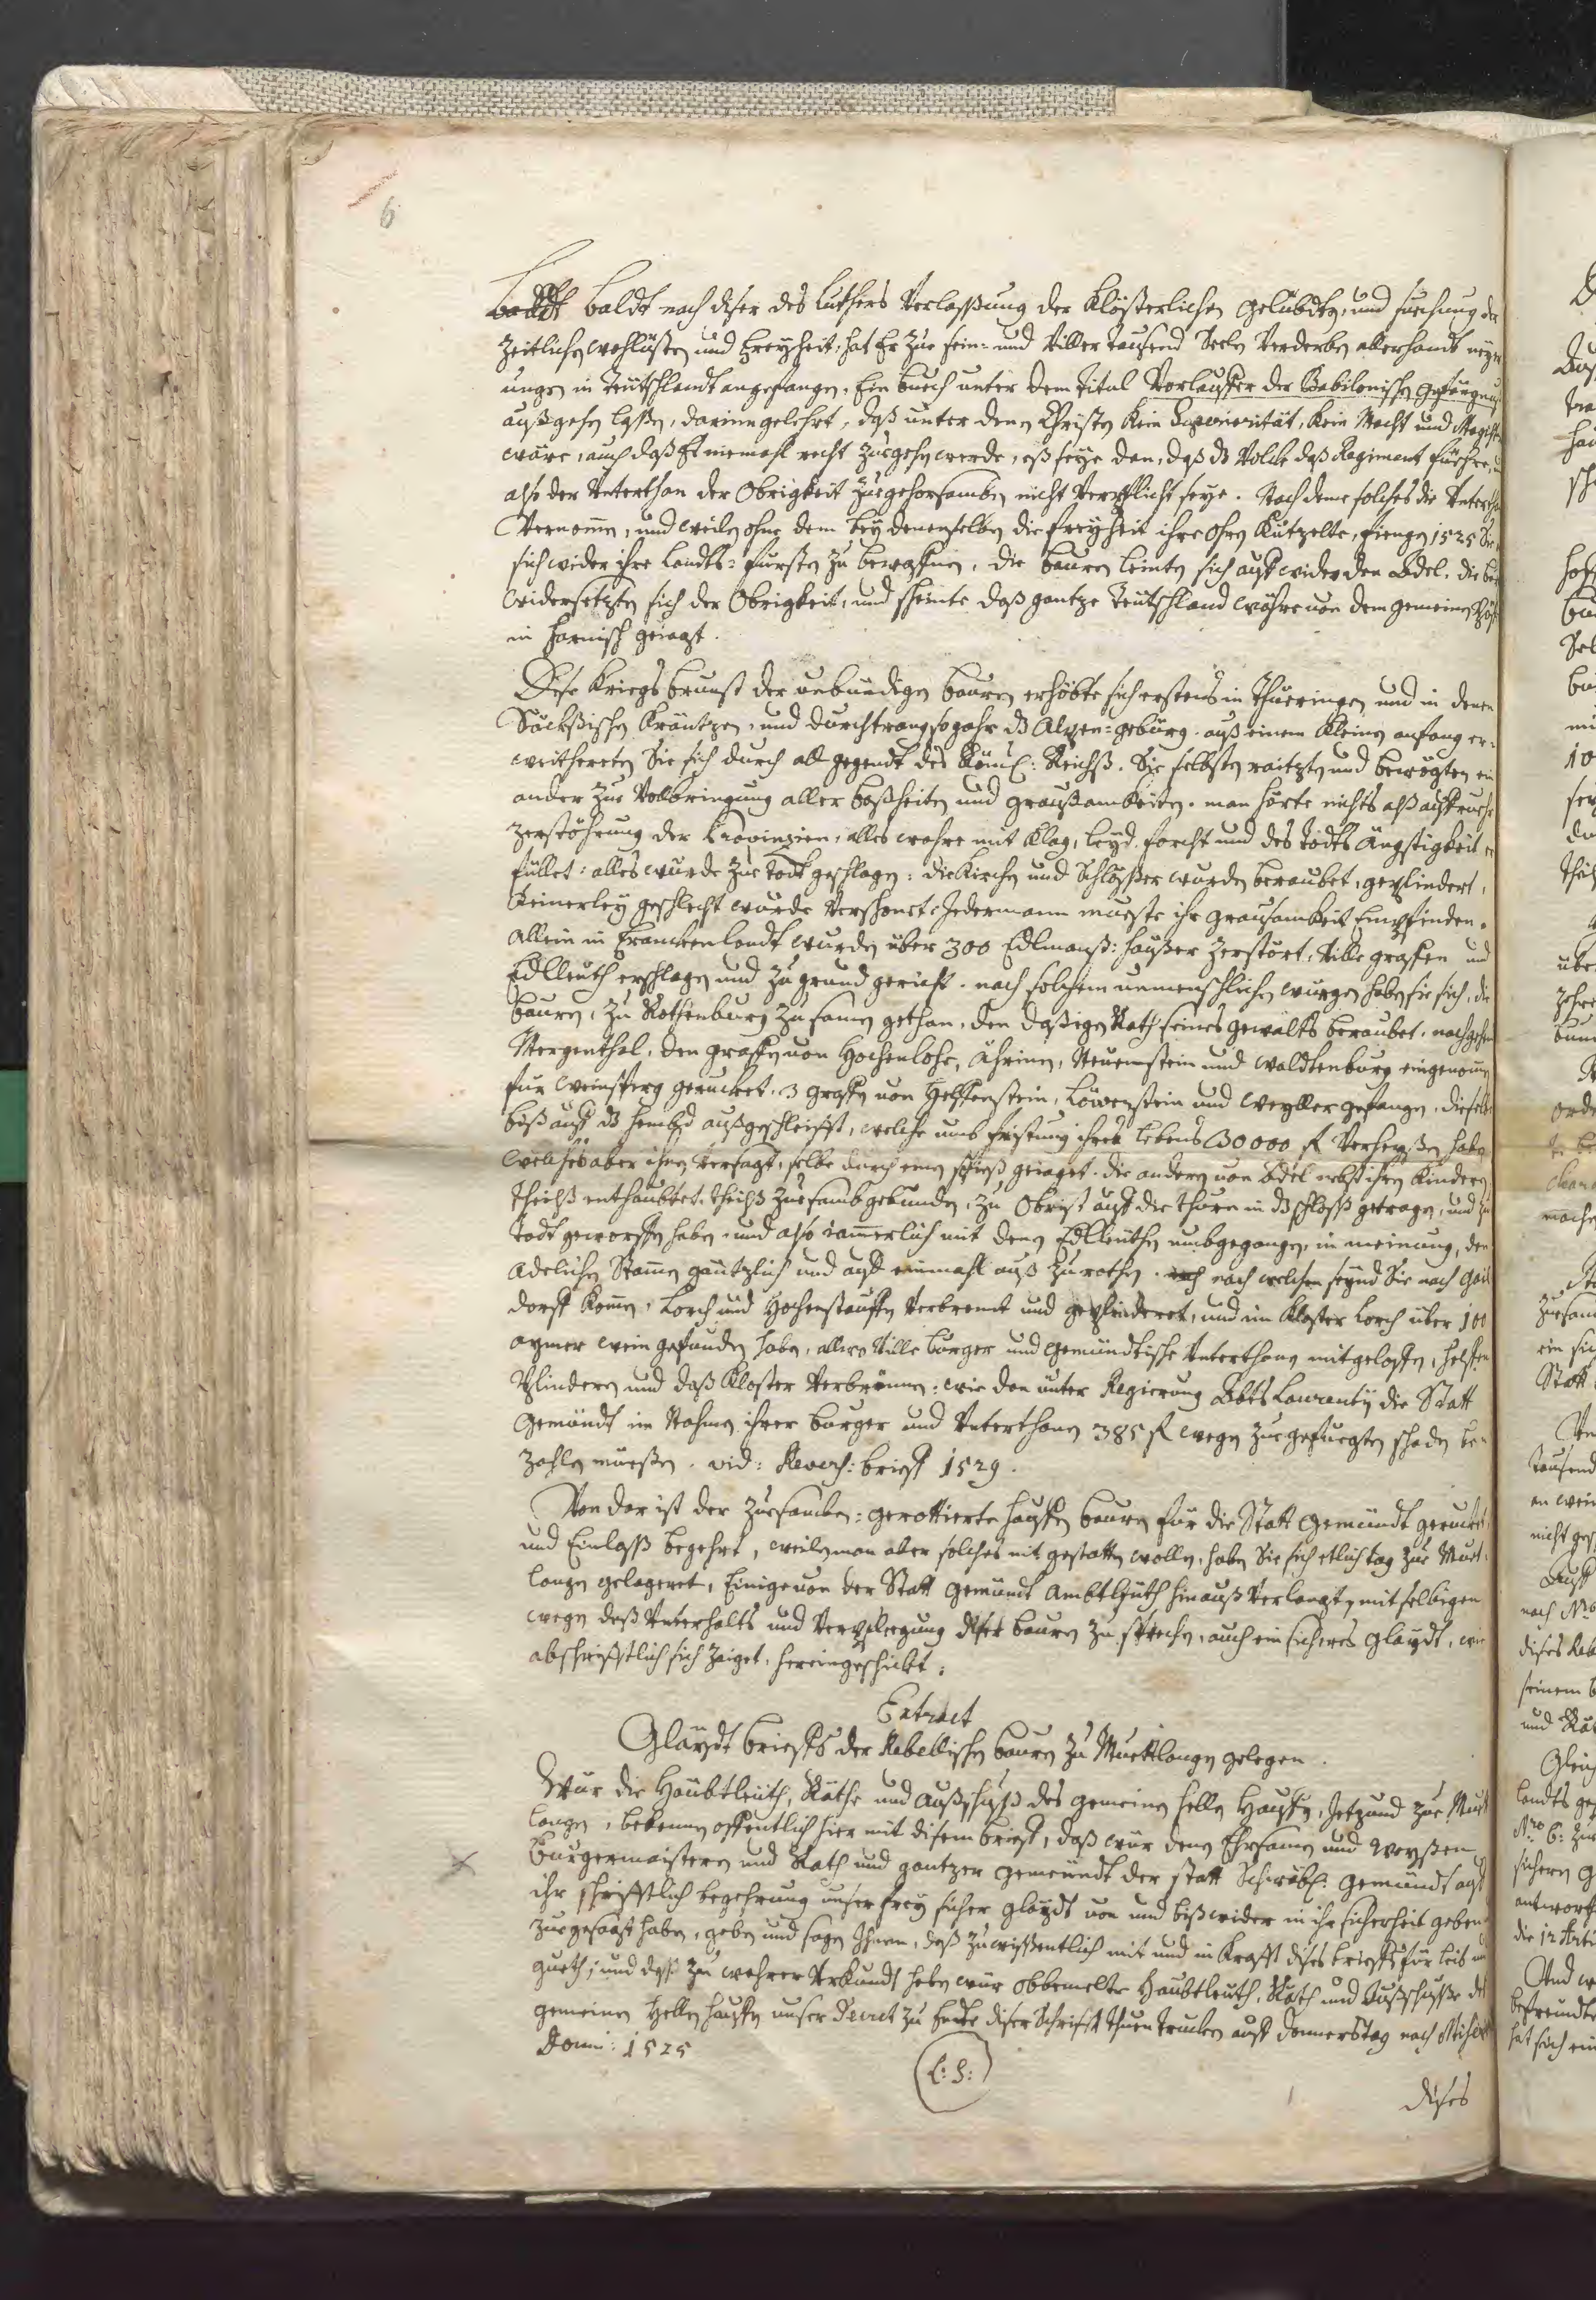 6
baldt baldt nach diser des Luthers Verlaßung der Klösterlichen gelübdten, und suechung der
Zeitlichen wohllüsten und Freyheit, hat Er zue sein= und Viller tausend Seeln Verderben allerhandt neyer
ungen in Teütschlandt angefangen, Ein buech unter dem Titul Vorlauffer der Babilonischen gefängnus
außgehen laßen, darinn gelehrt, daß unter denen Christen kein Superiorität, kein Macht und Magistr
wäre, auch daß Es niemahl recht zuegehen werde, eß seye dan, daß ds Volck daß Regiment füehre, u
also der Unterthan der Obrigkeit zuegehorsamben nicht Verpflicht seye. Nach deme solches die Untertha
Vernomen, und weilen ohne dem bey denenselben die freyheit ihre ohren kützelte, fiengen 1525 Sie
sich wider ihre Landts=fürsten zu bewaffnen, die bauren leinten sich auff wider den Adel, die bur
widersetzten sich der Obrigkeit, und scheinte daß gantze Teütschland währe von dem gemeinen Pöff
in Harnisch geiagt.
Dise Kriegs brunst der unbändigen bauren erhöbte sich erstens in Thüeringen und in denen
Säckßischen Kräntzen, und durchtrang sogahr ds Alpen=gebürg. auß einem kleinen anfang er=
weitherten Sie sich durch all gegendt des Röml: Reichß. Sie selbsten raitzten und bewögten ein
ander zue Volbringung aller boßheiten und graußamkeiten. man hörte nichts alß auffruehr
Zerstöhrung der Provinzien, alles wahre mit klag, leyd, forcht und des Todts Ängstigkeit er
füllet: alles wurde zue todt geschlagen: die Kirchen und Schlößer wurden beraubet, geplindert,
Keinerley geschlecht wurde Verschonet. Jedermann mueste ihr grausamkeit Empfinden.
allein in Franckenlandt wurden über 300 Edlmanß: häußer zerstört, Ville graffen und
Edlleuth erschlagen und zu grund gericht. nach solchem unmenschlichen würgen haben sie sich, die
bauren, zu Rothenburg zusamen gethan, den dasigen Rath seines gewalts beraubet, nachgehen
Mergenthal, den graffen von Hochenlohe, Öhringen, Neuenstein und Waldtenburg eingenomen
für Weinsperg gerucket. 3 graffen von Helffenstein, Löwenstein und Weyller gefangen, dieselbe
biß auff ds hembd außgeschleifft, welche umb fristung ihres lebens 30000 fl Verheyßen haben
welches aber ihnen Versagt, selbe durch einen spieß geiaget. die anderen von Adel nebst ihren Kindern
theilß enthaubtet, theilß zuesamb gebunden, zu obrist auff die thüren in ds schloß getragen, und zu
todt geworffen haben, und also iamerlich mit denen Edlleuthen umbgegangen, in meinung, den
adelichen Stamen gäntzlich und auff einmahl auß zurothen. nach welchem seynd Sie nach Gail
dorff komen, Lorch und Hochenstauffen Verbrendt und geplinderet, und im Kloster Lorch über 100
aymer wein gefunden haben, allwo Ville burger und gemündtische Unterthanen mitgeloffen, helffen
Plindern und daß Kloster Verbrönnen: wie dan unter Regierung Abbts Laurentij die Statt
gemündt im Nahmen ihrer burger und Unterthonen 385 fl wegen zuegefüegten schaden be=
zahlen müeßen. vid: Revers: brieff 1529.
Von dar ist der zuesamben=gerottierte hauffen bauren für die Statt gemündt geruckt,
und Einlaß begehrt, weilen man aber solches nit gestatten wollen, haben Sie sich etlich tag zue Muet=
langen gelageret, Einige von der Statt gemündt ambtleüth hinauß Verlangt, mit selbigen
wegen deß Unterhalts und Verpflegung diser bauren zu sprechen, auch ein sicheres glaydt, wie
abschrifftlich sich zaiget, hereingeschickt.
Extract
Glaydt brieffs der Rebellischen bauren zu Muettlangen gelegen.
Wür die Haubtleuth, Räthe und Außschuß des gemeinen hellen Hauffen, Jetzund zue Muet
langen, bekennen offentlich hier mit disem brieff, daß wür denen Ehrsamen und Weyßen
Burgermaistern und Rath und gantzer gemeindt der statt Schwäb: gemündt auff
ihr schrifftlich begehrung unser frey sicher glaydt von und biß wider in ihr sicherheit geben
zuegesagt haben, geben und sagen Ihnen, daß zu wißentlich mit und in Krafft dises brieffs für leib und
gueth; und deß zu wahrer Urkundt haben wür obbemelte Haubtleuth, Räth und Außschuße des
gemeinen Hellen hauffen unser Secret zu Ende diser Schrifft thuen trucken auff Donnerstag nach Miseric
Domi: 1525
(L: S:)
dises